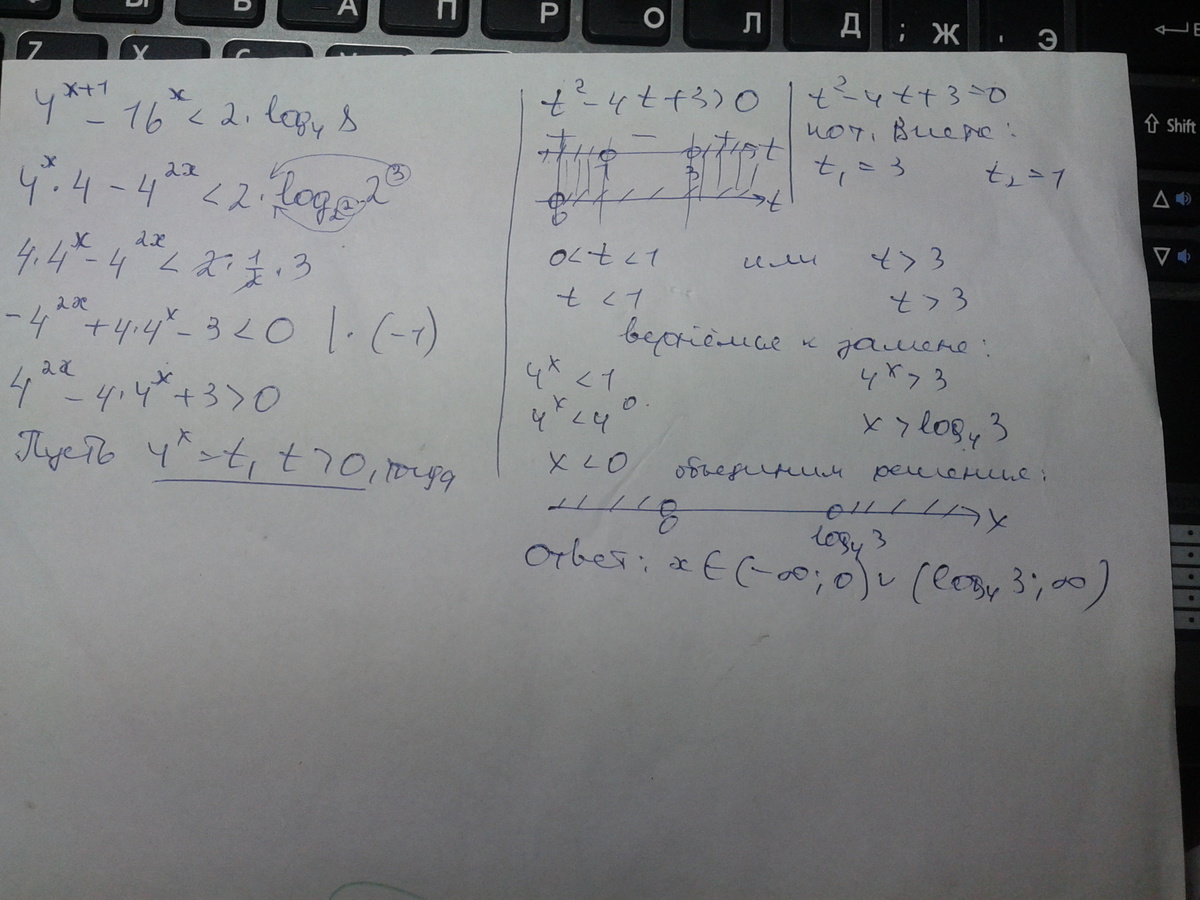 Ы В А П Р О Л Д ; Ж , Э
Z X C
Shift
4^{x+1} - 16^x < 2 · log₄ 8
4^x · 4 - 4^{2x} < 2 · log_{2^2} 2^3
4 · 4^x - 4^{2x} < 2 · 1/2 · 3
-4^{2x} + 4 · 4^x - 3 < 0 | · (-1)
4^{2x} - 4 · 4^x + 3 > 0
Пусть 4^x = t, t > 0, тогда
t² - 4t + 3 > 0
+ - + t
1 3
0 t
t² - 4t + 3 = 0
по т. Виета:
t₁ = 3 t₂ = 1
0 < t < 1 или t > 3
t < 1 t > 3
вернёмся к замене:
4^x < 1 4^x > 3
4^x < 4^0 x > log₄ 3
x < 0 объединим решения:
0 log₄ 3 x
Ответ: x ∈ (-∞; 0) ∪ (log₄ 3; ∞)